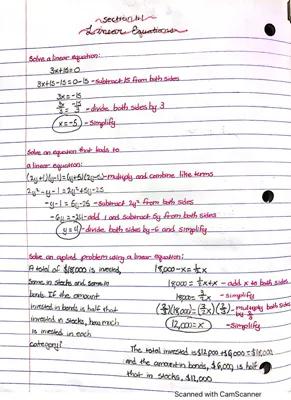 Section 1.1
Linear Equations
Solve a linear equation:
3x+15=0
3x+15-15=0-15 - subtract 15 from both sides
3x=-15
3x/3 = -15/3 - divide both sides by 3
x=-5 - simplify
Solve an equation that leads to
a linear equation:
(2y+1)(y-1)=(y+5)(2y-5) - multiply and combine like terms
2y²-y-1=2y²+5y-25
-y-1=5y-25 - subtract 2y² from both sides
-6y=-24 - add 1 and subtract 5y from both sides
y=4 - divide both sides by -6 and simplify
Solve an applied problem using a linear equation:
A total of $18,000 is invested, 18,000-x=½x
Some in stocks and some in 18,000=½x+x - add x to both sides
bonds. If the amount 18,000=3/2x - simplify
invested in bonds is half that (2/3)(18,000)=(3/2x)(2/3) - multiply both sides by 2/3
invested in stocks, how much 12,000=x - simplify
is invested in each
category?
The total invested is $12,000+6,000=$18,000
and the amount in bonds, $6,000, is half
that in stocks, $12,000
Scanned with CamScanner